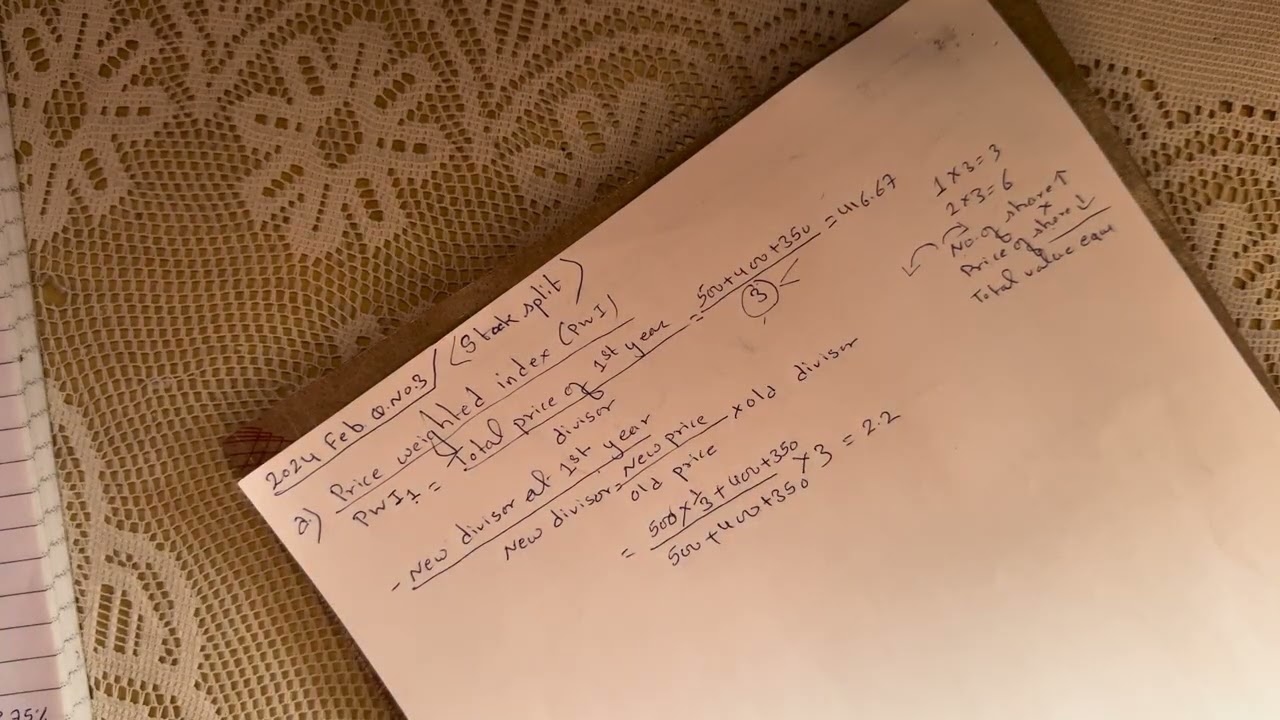 2024 Feb. Q.NO.3 / (Stock split)
a) Price weighted index (PWI)
PWI1 = Total price of 1st year / divisor = 500+400+350 / 3 = 416.67
- New divisor at 1st year
New divisor = New price / old price × old divisor
= 500 × 1/3 + 400+350 / 500+400+350 × 3 = 2.2
1×3=3
2×3=6
No. of share ↑
×
Price of share ↓
Total value equ
.75%